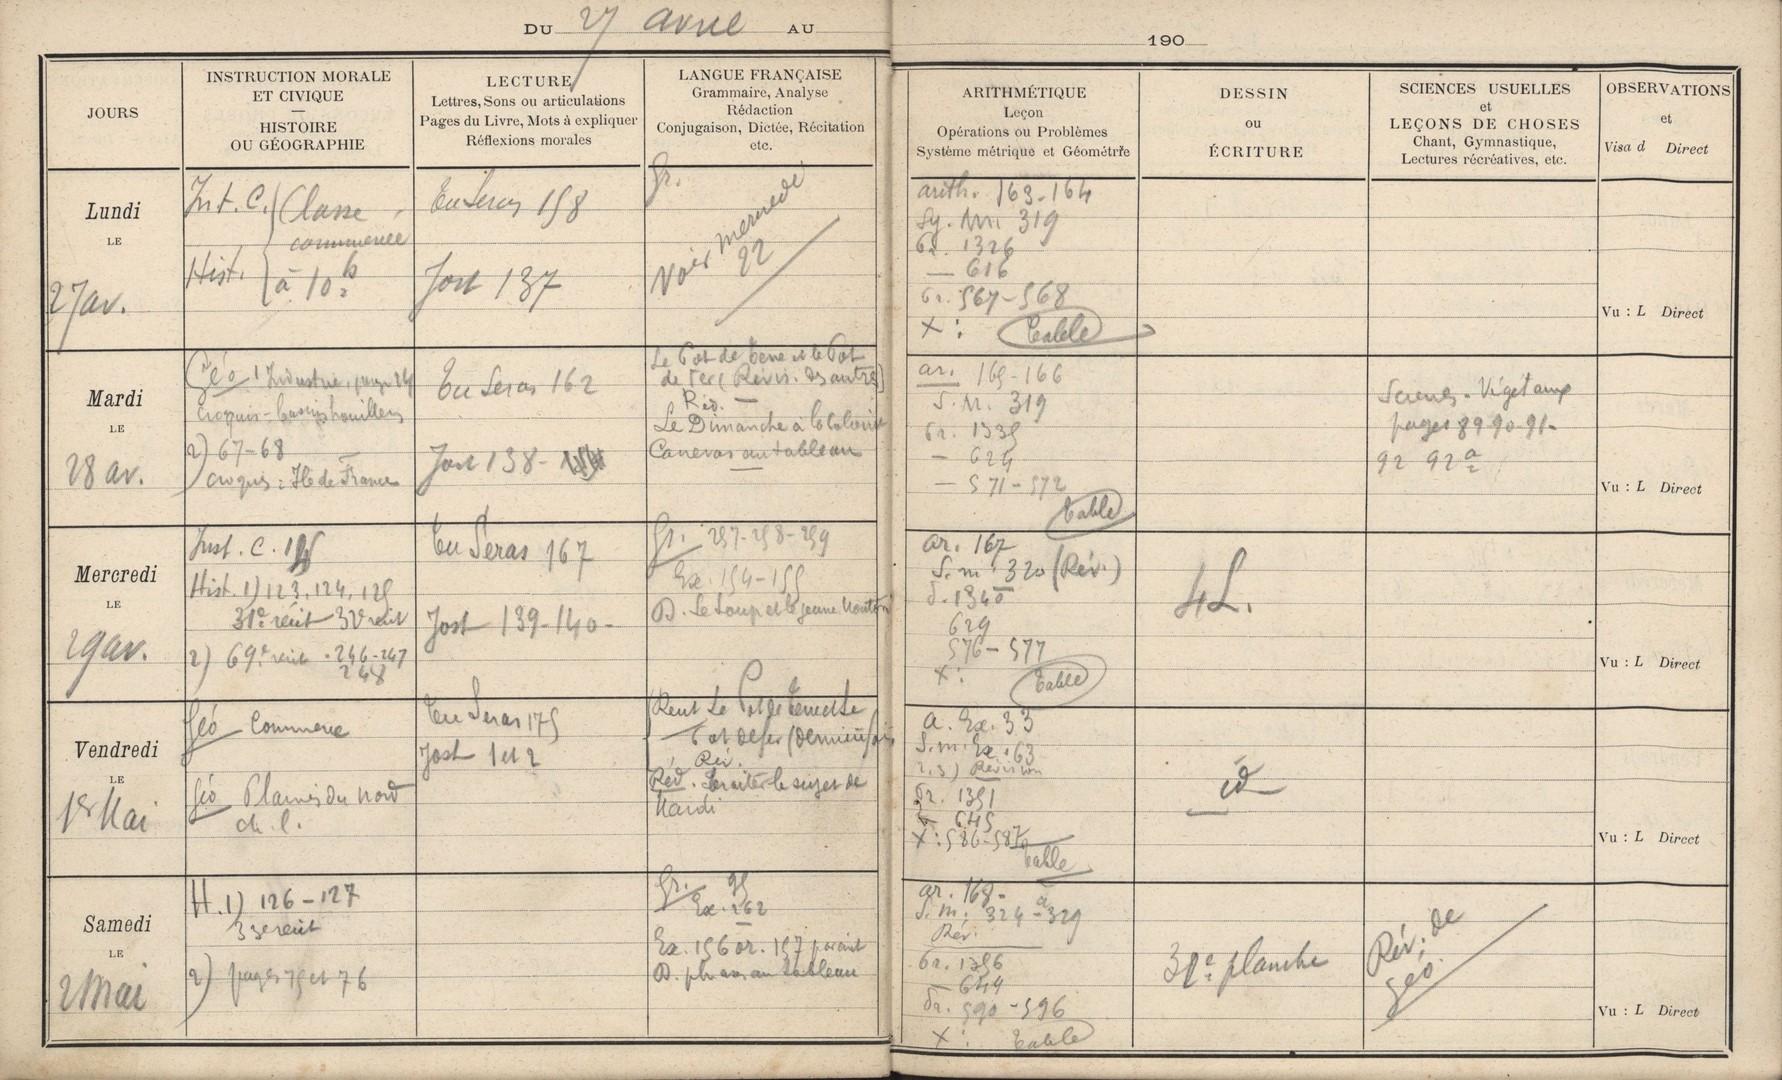 DU 27 avril AU
190
JOURS
INSTRUCTION MORALE
ET CIVIQUE
HISTOIRE
OU GÉOGRAPHIE
LECTURE
Lettres, Sons ou articulations
Pages du Livre, Mots à expliquer
Réflexions morales
LANGUE FRANÇAISE
Grammaire, Analyse
Rédaction
Conjugaison, Dictée, Récitation
etc.
ARITHMÉTIQUE
Leçon
Opérations ou Problèmes
Système métrique et Géométrie
DESSIN
ou
ÉCRITURE
SCIENCES USUELLES
et
LEÇONS DE CHOSES
Chant, Gymnastique,
Lectures récréatives, etc.
OBSERVATIONS
et
Visa d Direct
Lundi
LE
27 av.
Inst. C. Classe
commence
Hist. à 10h
Tu Seras 158
Jost 137
Gr.
Voir mercredi
22
arith. 163-164
Sy. M. 319
1326
— 616
567-568
X : Table
Vu : L Direct
Mardi
LE
28 av.
Géo 1 Industrie, page 24
croquis - bassins houillers
2) 67-68
croquis : Ile de France
Tu Seras 162
Jost 138-
Le Pot de terre et le Pot
de fer (Révis. des autres)
Réd. —
Le Dimanche à la
Canevas au tableau
ar. 165-166
S. M. 319
1335
— 624
— 571-572
Table
Sciences - Végétaux
pages 89 90-91-
92 92a
Vu : L Direct
Mercredi
LE
29 av.
Inst. C.
Hist. 1) 123, 124, 125
31e récit 32e récit
2) 69e récit - 246-247
248
Tu Seras 167
Jost 139-140-
Gr. 257-258-259
Ex. 154-155
D. Le Loup et le jeune Mouton
ar. 167
S. m. 320 (Rév.)
1340
629
576-577
X : Table
4L.
Vu : L Direct
Vendredi
LE
1er Mai
Géo Commerce
Géo Plaines du Nord
ch. l.
Tu Seras 175
Jost 1 et 2
Récit Le Pot de terre et Le
Pot de fer (dernière fois)
Rév.
Réd. Traiter le sujet de
Mardi
a. Ex. 33
S. m. Ex. 63
2, 3) Révision
1351
645
X : 586-587
Table
id
Vu : L Direct
Samedi
LE
2 Mai
H. 1) 126-127
33e récit
2) pages 75 et 76
Gr. 95
Ex. 262
Ex. 156 or. 157 par écrit
D. phrases au tableau
ar. 168-
S. m. 324 à 329
Rév.
1356
— 644
590-596
X : Table
31e planche
Rév. de
géo.
Vu : L Direct